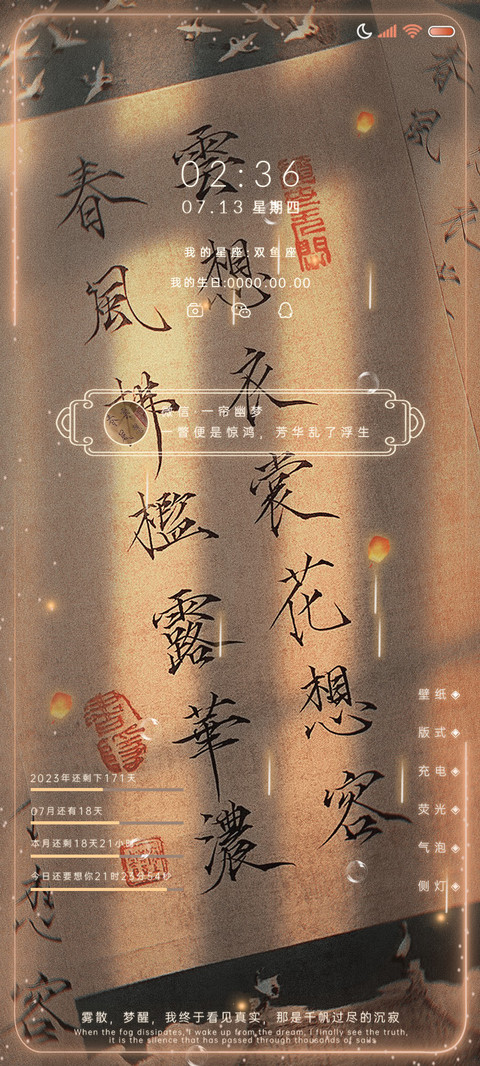 02:36
07.13 星期四
我的星座:双鱼座
我的生日:0000.00.00
雲想衣裳花想容
春風拂檻露華濃
微信·一帘幽梦
一瞥便是惊鸿，芳华乱了浮生
壁纸
版式
充电
荧光
气泡
侧灯
2023年还剩下171天
07月还有18天
本月还剩18天21小时
今日还要想你21时23分54秒
想
容
春
風
雾散，梦醒，我终于看见真实，那是千帆过尽的沉寂
When the fog dissipates, I wake up from the dream, I finally see the truth,
it is the silence that has passed through thousands of sails